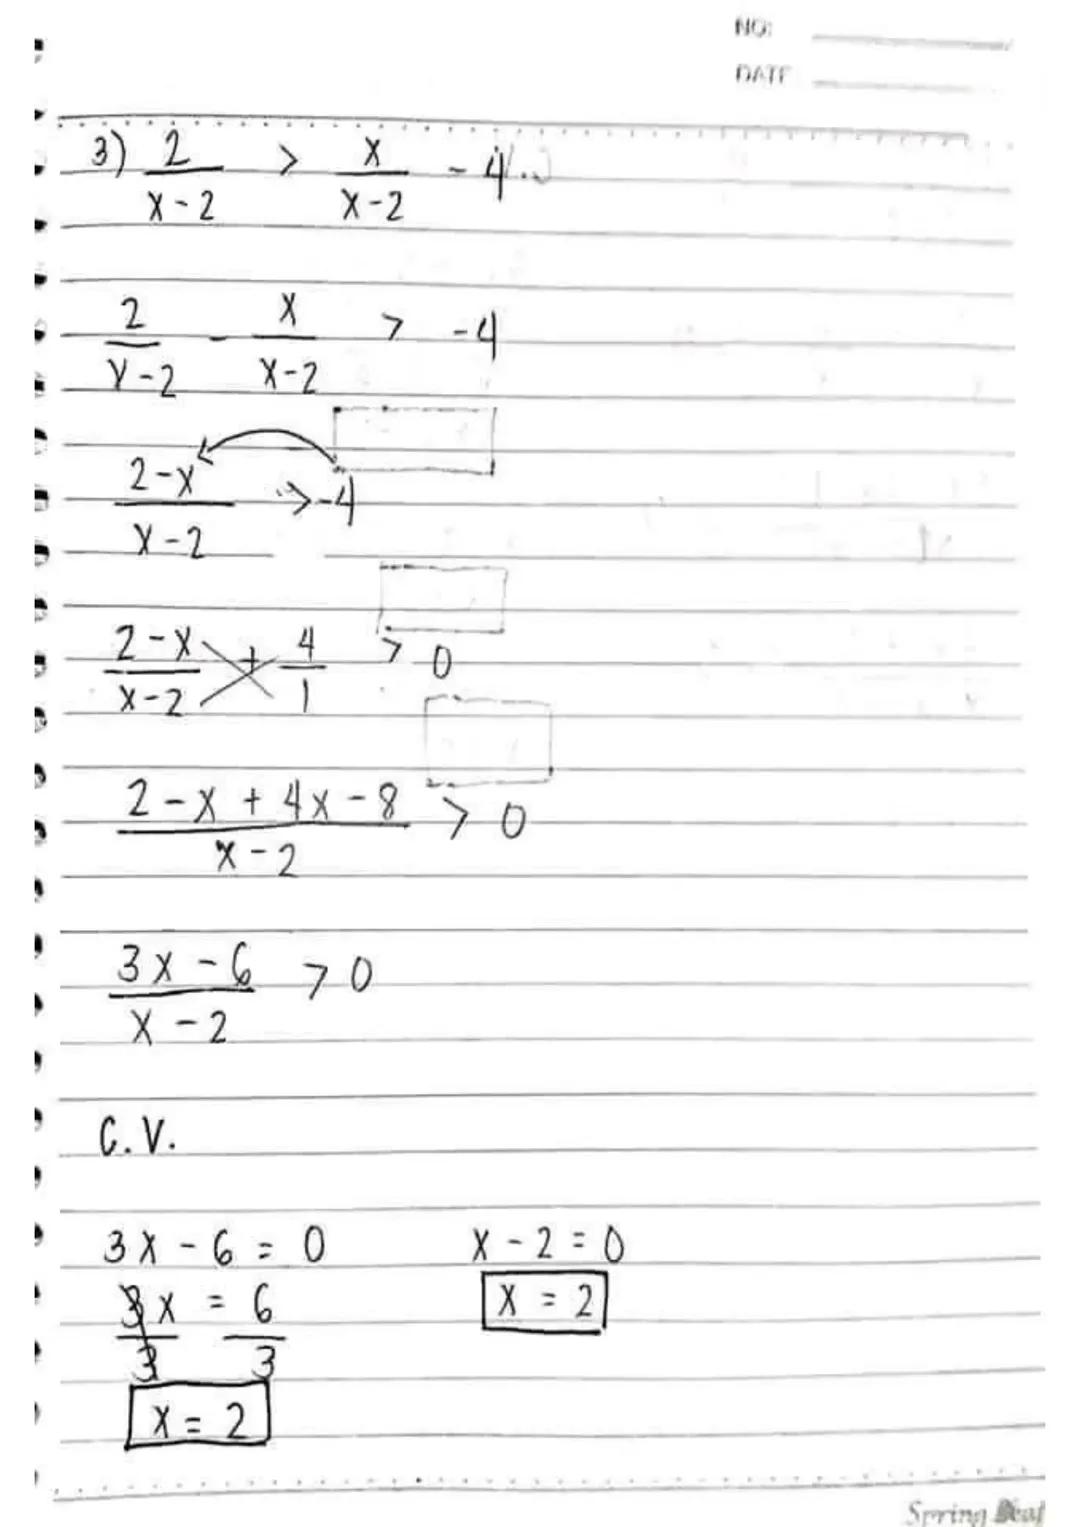 NO:
DATE
3) 2/(x-2) > x/(x-2) - 4
2/(x-2) - x/(x-2) > -4
(2-x)/(x-2) > -4
(2-x)/(x-2) + 4/1 > 0
(2-x+4x-8)/(x-2) > 0
(3x-6)/(x-2) > 0
C.V.
3x-6=0 x-2=0
3x/3 = 6/3 x = 2
x = 2
Spring Leaf